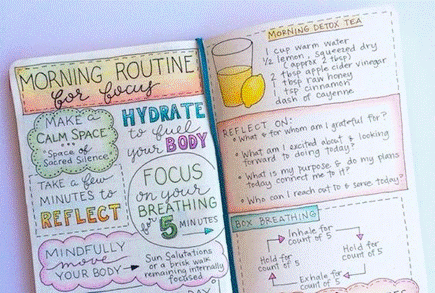 MORNING ROUTINE
for focus
MAKE A
CALM SPACE
Space of
Sacred Silence
HYDRATE
to fuel
your BODY
TAKE A few
MINUTES to
REFLECT
FOCUS
on your
BREATHING
for 5
MINUTES
MINDFULLY
move
YOUR BODY →
Sun Salutations
or a brisk walk
remaining internally
focused
DAY
MORNING DETOX TEA
1 cup warm water
1/2 lemon, squeezed dry
(approx 2 tbsp)
2 tbsp apple cider vinegar
tbsp raw honey
tsp cinnamon
dash of cayenne
REFLECT ON:
• What & for whom am I grateful for?
• What am I excited about & looking
forward to doing today?
• What is my purpose & do my plans
today connect me to it?
• Who can I reach out to & serve today?
BOX BREATHING
Inhale for
count of 5
Hold for
count of 5
Hold for
count of 5
Exhale for
count of 5